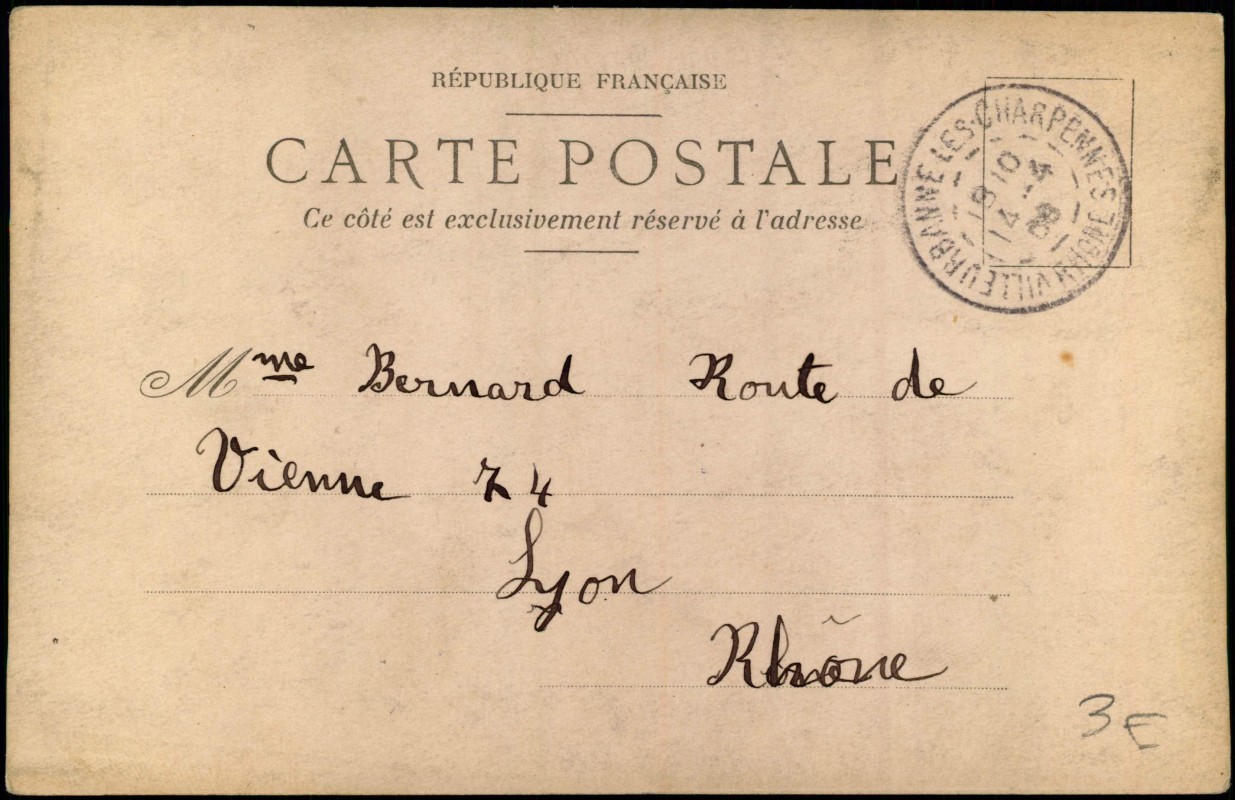 RÉPUBLIQUE FRANÇAISE
CARTE POSTALE
Ce côté est exclusivement réservé à l'adresse
VILLEURBANNE LES-CHARPENNES RHÔNE
Mme Bernard Route de
Vienne 74
Lyon
Rhône
3 E